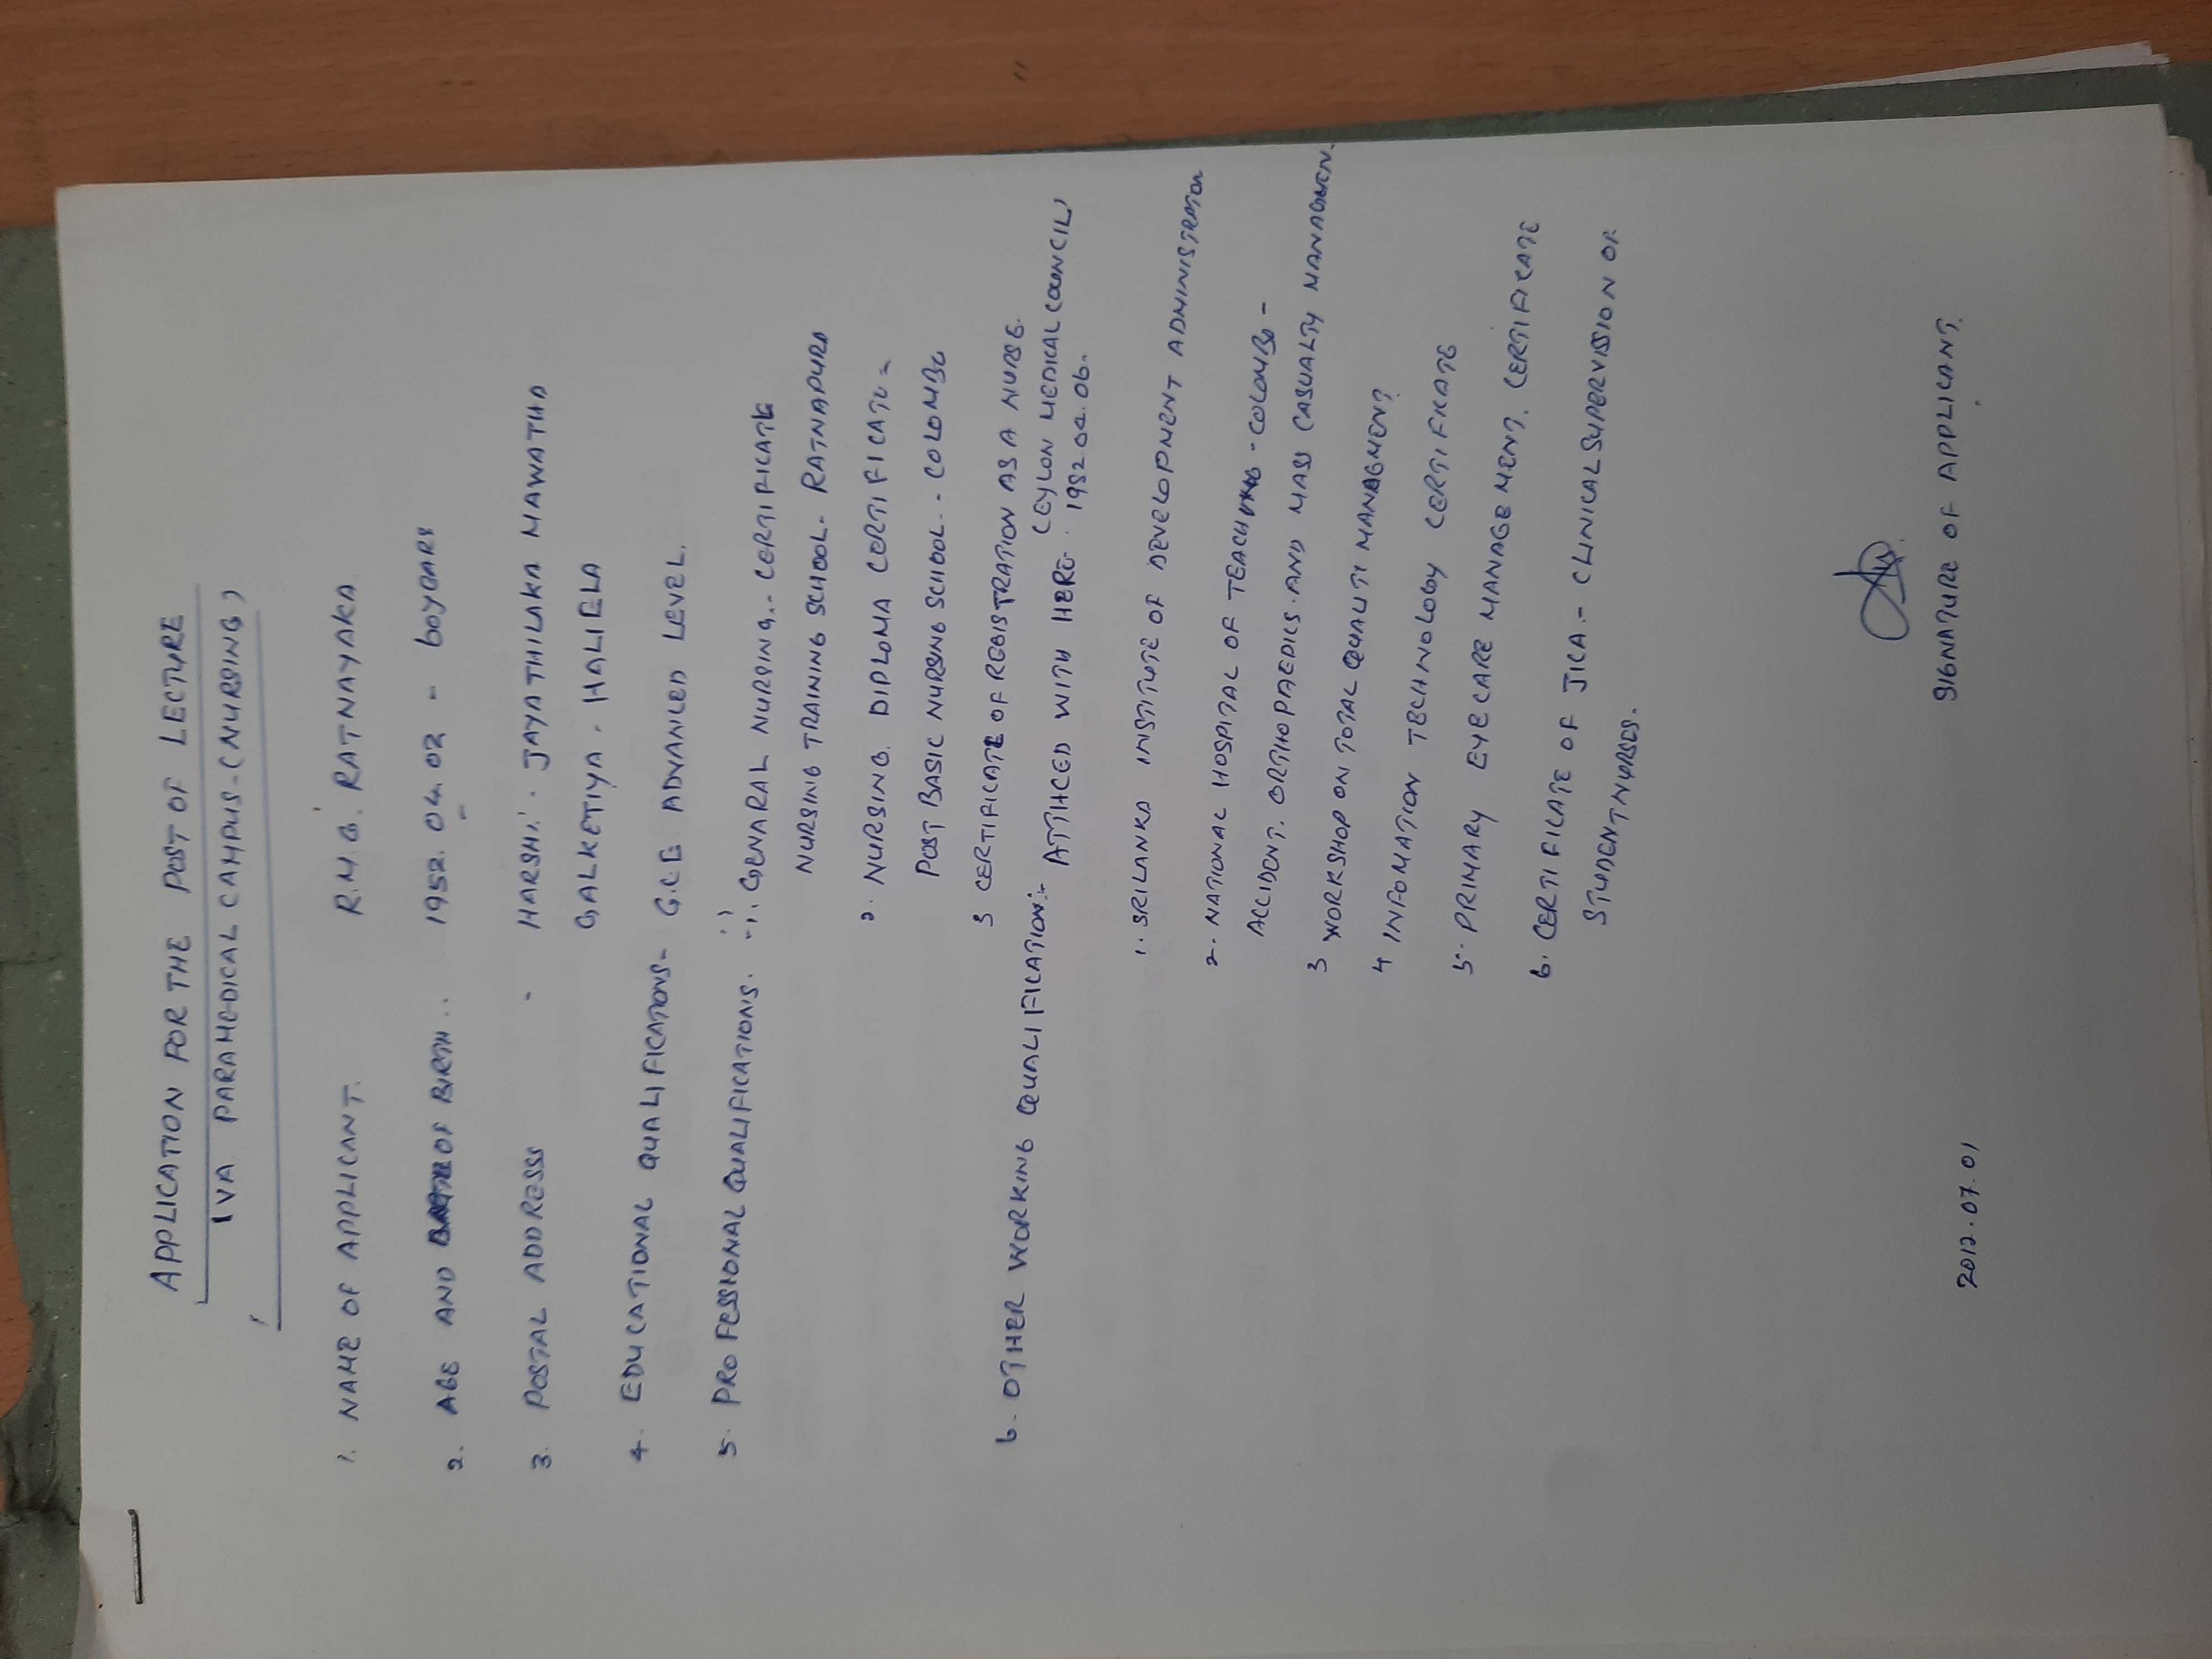 APPLICATION FOR THE POST OF LECTURE
IVA PARAMEDICAL CAMPUS-(NURSING)
1. NAME OF APPLICANT. R.M.G. RATNAYAKA
2. AGE AND OF BIRTH.. 1952.04.02 - 60YEARS
3. POSTAL ADDRESS - HARSHI. JAYATHILAKA MAWATHA
GALKETIYA. HALIELA
4. EDUCATIONAL QUALIFICATIONS- G.C.E ADVANCED LEVEL.
5. PROFESSIONAL QUALIFICATIONS. 1. GENARAL NURSING.- CERTIFICATE
NURSING TRAINING SCHOOL- RATNAPURA
2. NURSING DIPLOMA CERTIFICATE-
POST BASIC NURSING SCHOOL.- COLOMBO
3 CERTIFICATE OF REGISTRATION AS A NURSE.
CEYLON MEDICAL COUNCIL)
6. OTHER WORKING QUALIFICATION:- ATTHCED WITH HERE. 1982.04.06.
1. SRILANKA INSTITUTE OF DEVELOPMENT ADMINISTRATION
2. NATIONAL HOSPITAL OF TEACHING - COLOMBO -
ACCIDENT. ORTHOPAEDICS. AND MASS CASUALTY MANAGMENT.
3 WORKSHOP ON TOTAL QUALITI MANAGMENT
4 INFOMATION TECHNOLOGY CERTIFICATE
5. PRIMARY EYE CARE MANAGEMENT. CERTIFICATE
6. CERTIFICATE OF JICA.- CLINICAL SUPERVISSION OF
STUDENT NURSES.
2012.07.01 SIGNATURE OF APPLICANT.